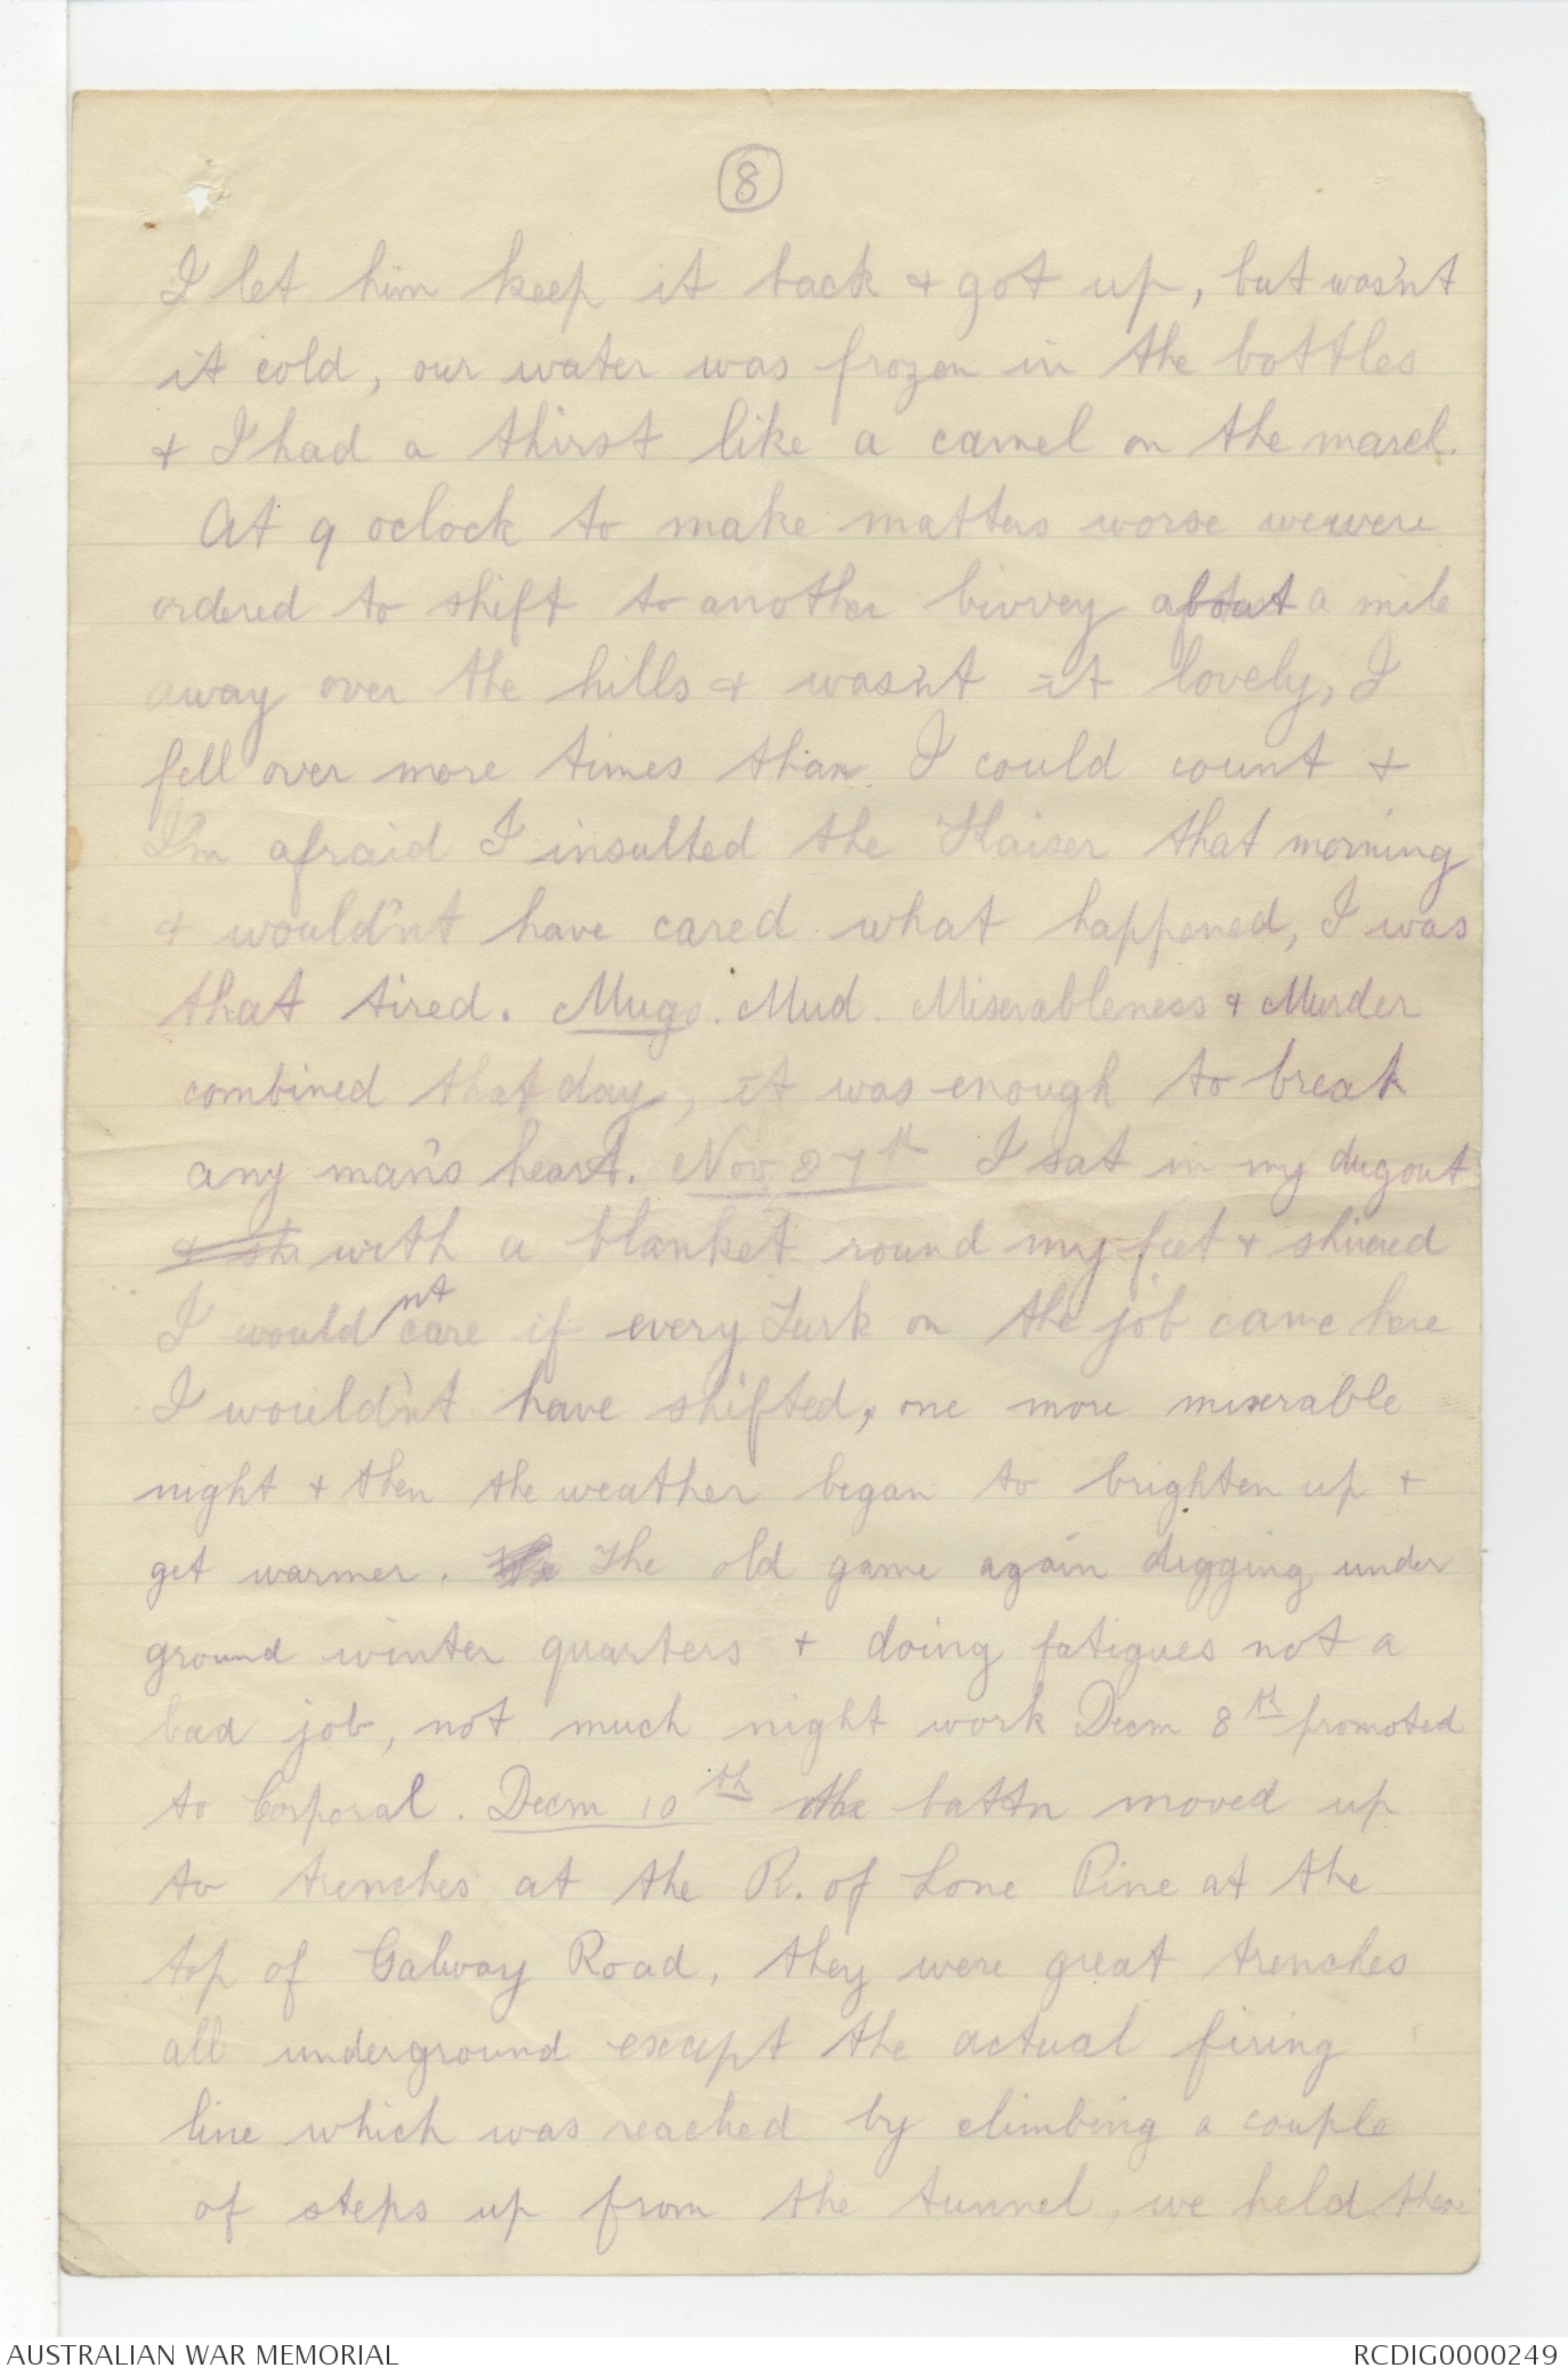 8
I let him keep it back & got up, but was'nt
it cold, our water was frozen in the bottles
& I had a thirst like a camel on the march.
At 9 oclock to make matters worse we were
ordered to shift to another bivvey about a mile
away over the hills & was'nt it lovely, I
fell over more times than I could count &
I'm afraid I insulted the Kaiser that morning
& would'nt have cared what happened, I was
that tired. Mugs. Mud. Miserableness & Murder
combined that day, it was enough to break
any man's heart. Nov. 27th I sat in my dugout
& shi with a blanket round my feet & shivered
I wouldnt care if every Turk on the job came here
I would'nt have shifted, one more miserable
night & then the weather began to brighten up &
get warmer. The old game again digging under
ground winter quarters & doing fatigues not a
bad job, not much night work Decm 8th promoted
to Corporal. Decm 10th the battn moved up
to trenches at the R. of Lone Pine at the
top of Galway Road, they were great trenches
all underground except the actual firing
line which was reached by climbing a couple
of steps up from the tunnel, we held these
AUSTRALIAN WAR MEMORIAL
RCDIG0000249